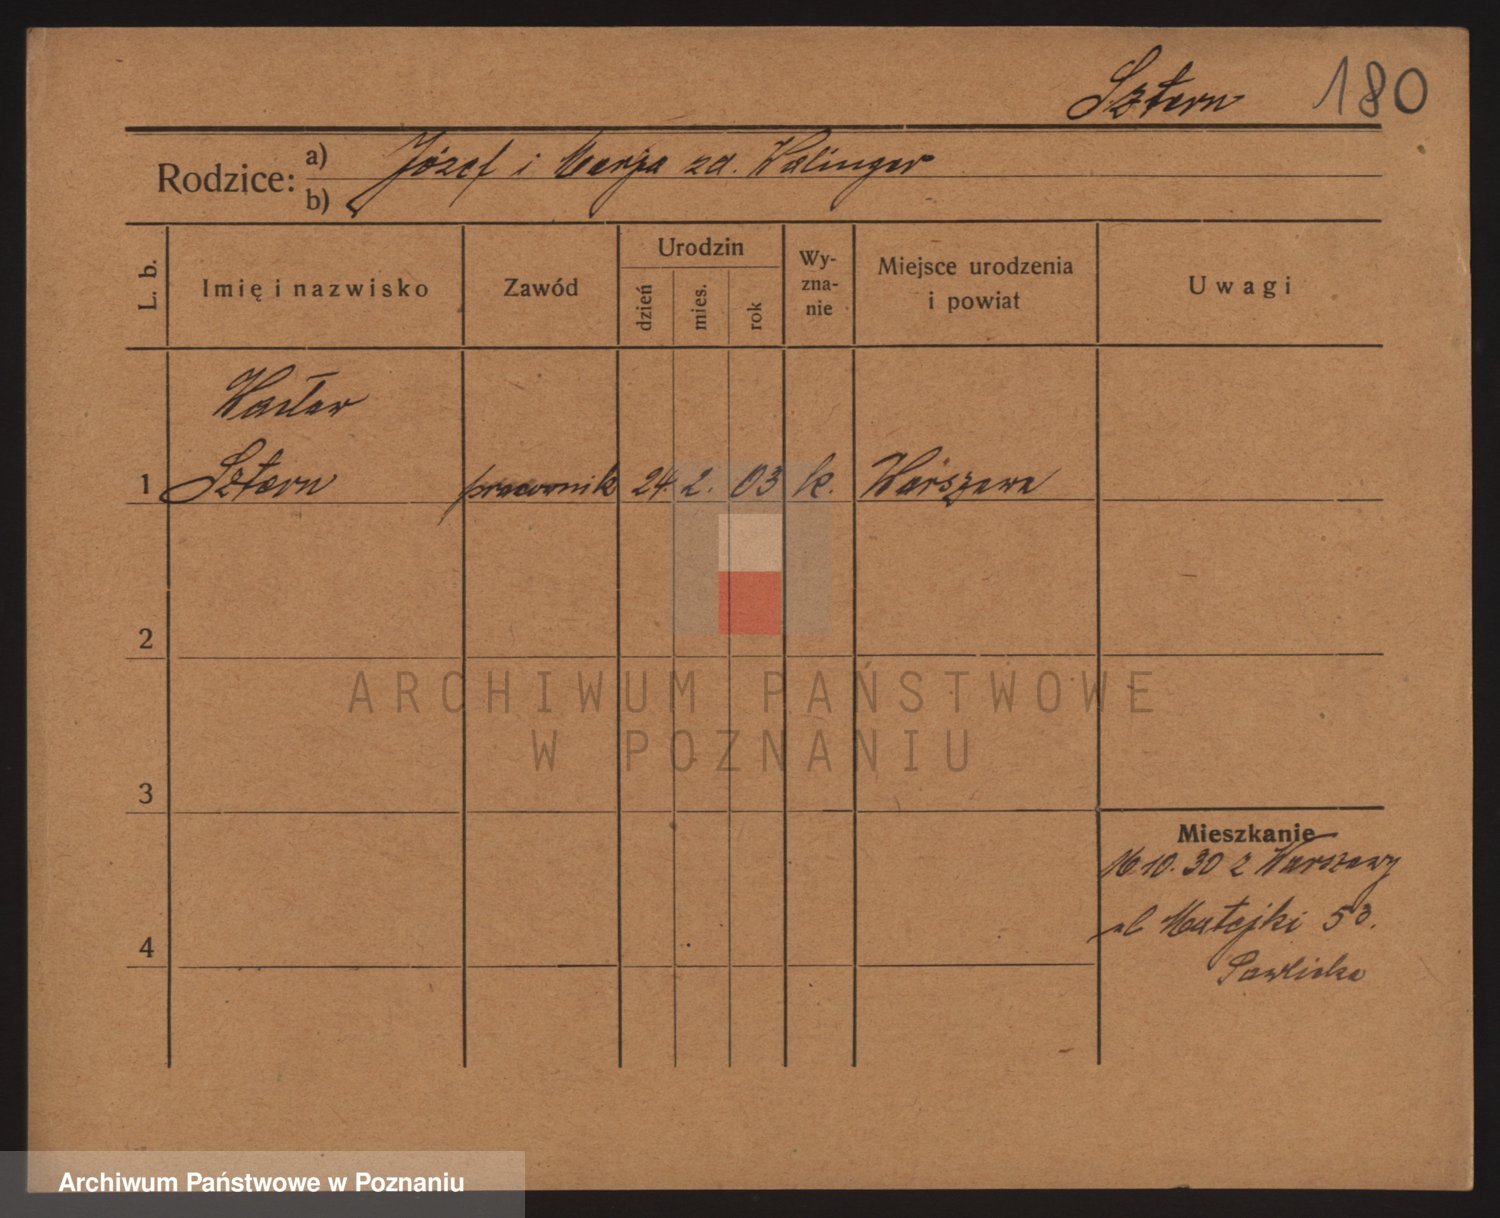 Sztern 180
Rodzice: a) Józef i Marja zd. Walinger
b)
L. b.
Imię i nazwisko
Zawód
Urodzin
dzień
mies.
rok
Wy-
zna-
nie
Miejsce urodzenia
i powiat
Uwagi
Wacław
1 Sztern pracownik 24. 2. 03 k. Warszawa
2
ARCHIWUM PAŃSTWOWE
W POZNANIU
3
Mieszkanie
16.10.30 z Warszawy
ul Matejki 53.
4
Pawlicka
Archiwum Państwowe w Poznaniu